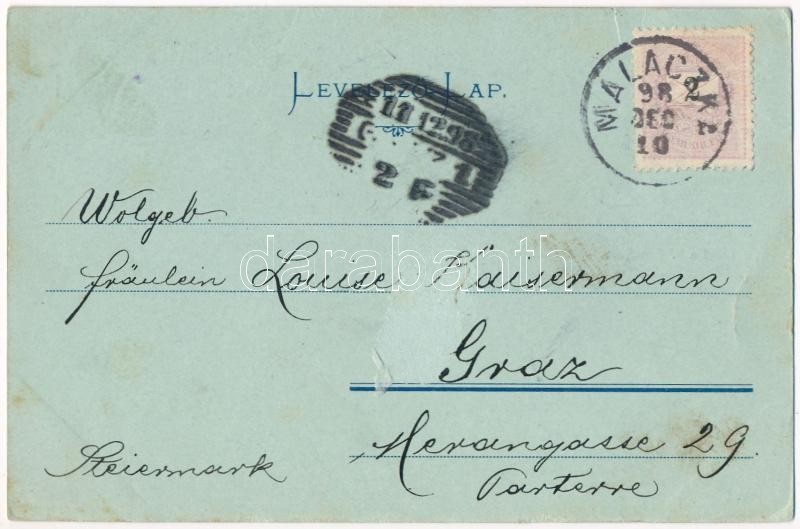 LEVELEZŐ-LAP.
MALACZKA
98
DEC
10
2
11 12 98
1
2 F
Wolgeb.
fräulein Louise Kaisermann
Graz
Merangasse 29.
Parterre
Steiermark
darabanth